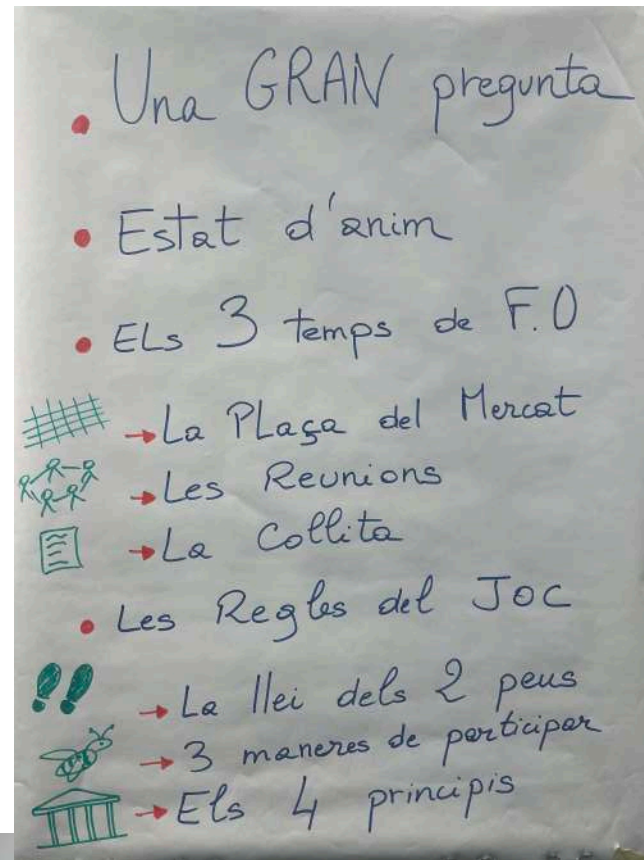 Una GRAN pregunta
Estat d'anim
ELs 3 temps de F.O
La PLaça del Mercat
Les Reunions
La Collita
Les Regles del JOC
La llei dels 2 peus
3 maneres de participar
Els 4 principis